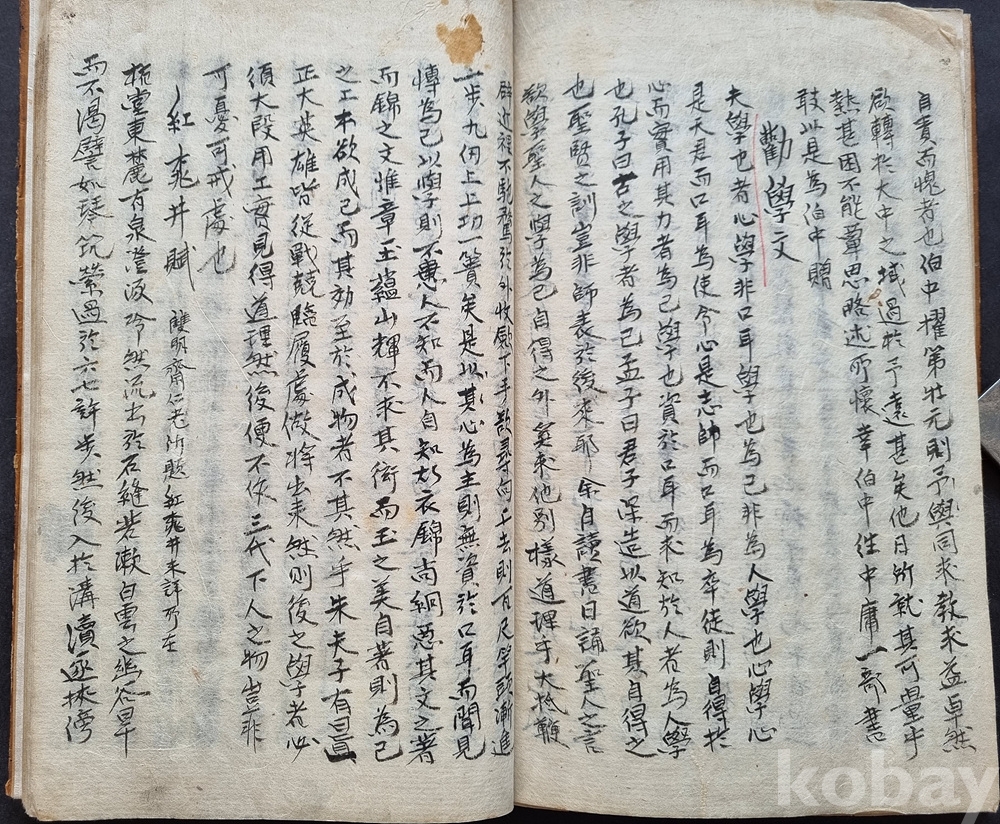 自責而愧者也伯中擢第壯元則予與同求教求益卓然
欲轉於大中之域過於予遠甚矣他日所就其可量乎
熱甚困不能覃思略述所懷幸伯中徃中庸一部書
敢以是為伯中贈
勸學文
夫學也者心學非口耳學也為己非為人學也心學心
是天君而口耳為使令心是志帥而口耳為卒徒則自得於
心而實用其力者為己學也資於口耳而求知於人者為人學
也孔子曰古之學者為己孟子曰君子深造以道欲其自得之
也聖賢之訓豈非師表於後來耶余自讀書日誦聖人之言
欲學聖人之學為己自得之外奚來他別樣道理乎大抵鞭
辟近裡不馳騖於外收斂下手欲尋向上去則百尺竿頭漸進
一步九仞上上功一簣矣是以其心為主則無資於口耳而聞見
博為己以學則不患人不知而人自知故衣錦尚絅惡其文之著
而錦之文惟章玉蘊山輝不求其衒而玉之美自著則為己
之工本欲成己而其効至於成物者不其然乎朱夫子有曰真
正大英雄皆從戰兢臨履處做將出来然則後之學者必
須大段用工實見得道理然後便不作三代下人之物豈非
可憂可戒處也
紅桃井賦 雙明齋仁老所題紅桃井未詳所在
梅堂東麓有泉澄渟泠然流出於石縫若漱白雲之幽谷旱
而不渴譬如琴筑縈過於六七許步然後入於溝瀆逐挾滂